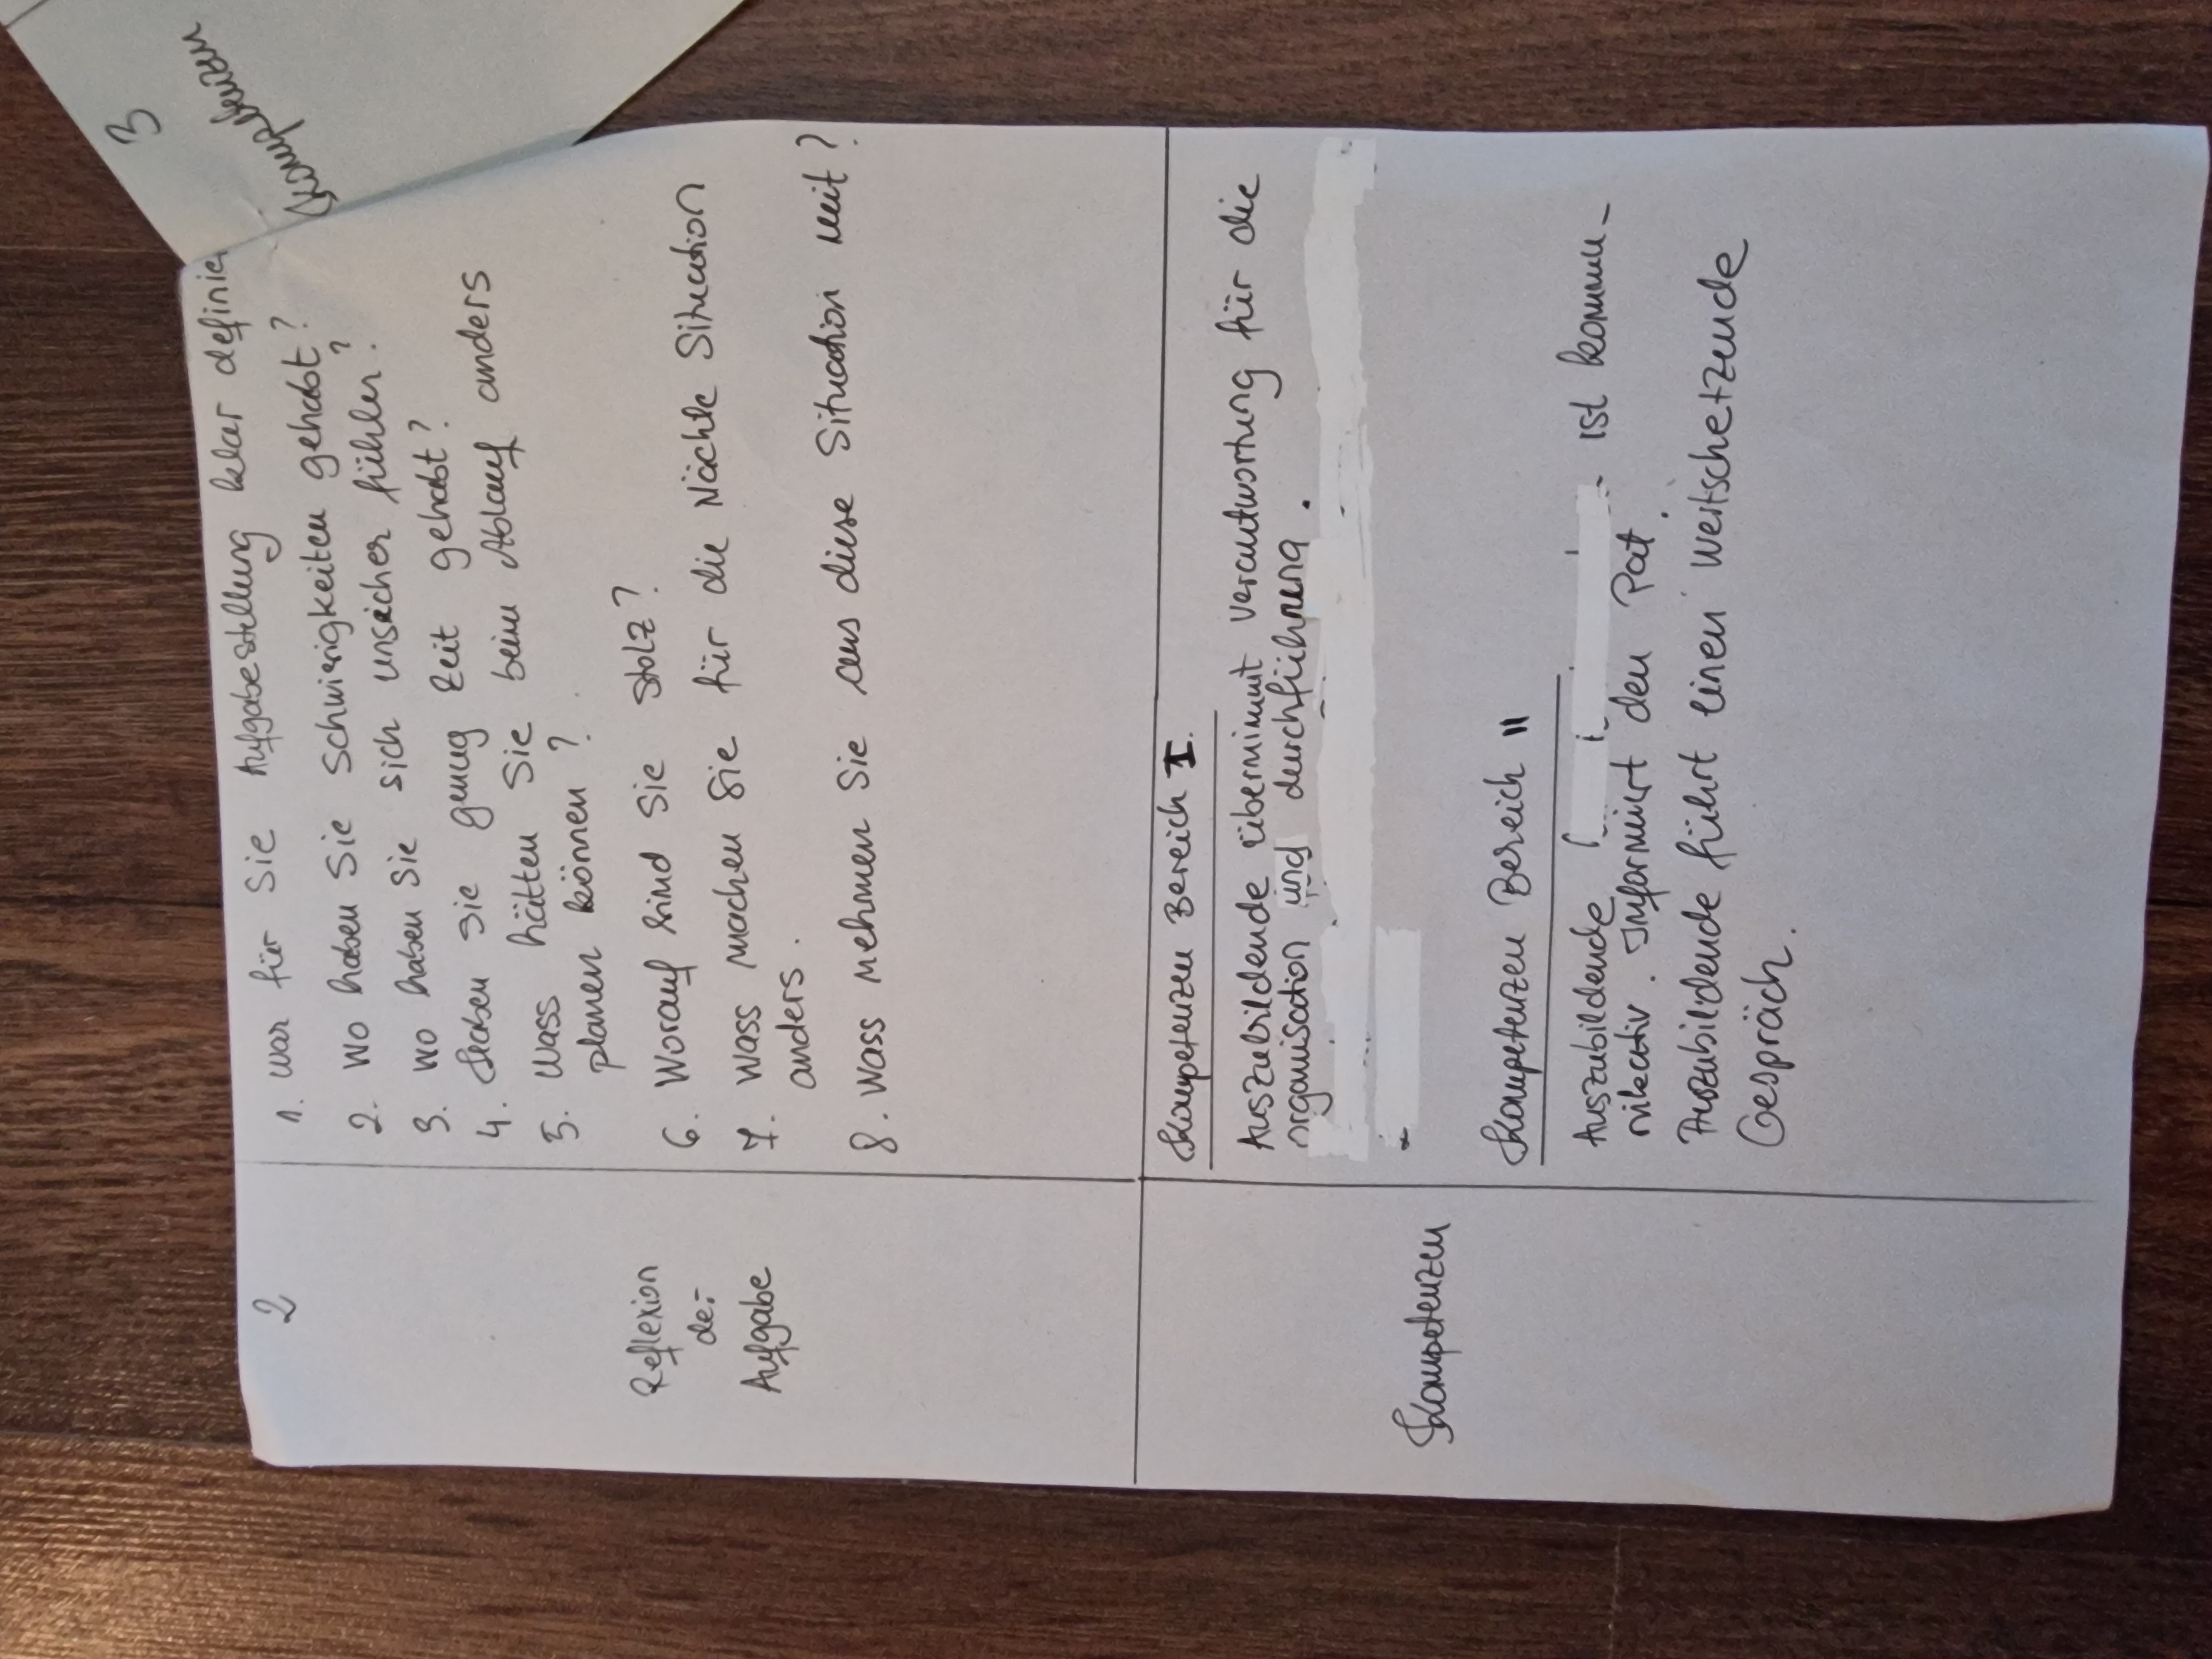 2
1. War für Sie Aufgabestellung klar definie
2. Wo haben Sie Schwierigkeiten gehabt?
3. Wo haben Sie sich unsicher fühlen?
4. Haben sie genug Zeit gehabt?
5. Wass hätten Sie beim Ablauf anders
planen können?
6. Worauf sind Sie Stolz?
7. Wass machen Sie für die Nächte Situation
anders.
8. Wass nehmen Sie aus diese Situation mit?
Reflexion
der
Aufgabe
Kompetenzen
Kompetenzen Bereich I.
Auszubildende übernimmt Verantwortung für die
organisation und durchführung.
Kompetenzen Bereich II
Auszubildende ist kommu-
nikativ. Informiert den Pat.
Auszubildende führt einen Wertschetzende
Gespräch.
3
Kompetenzen